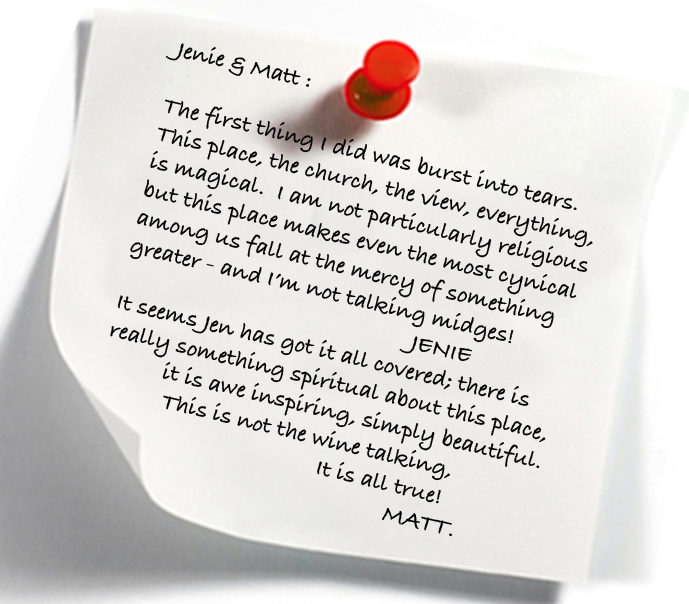 Jenie & Matt :
The first thing I did was burst into tears.
This place, the church, the view, everything,
is magical. I am not particularly religious
but this place makes even the most cynical
among us fall at the mercy of something
greater - and I'm not talking midges!
JENIE
It seems Jen has got it all covered; there is
really something spiritual about this place,
it is awe inspiring, simply beautiful.
This is not the wine talking,
It is all true!
MATT.